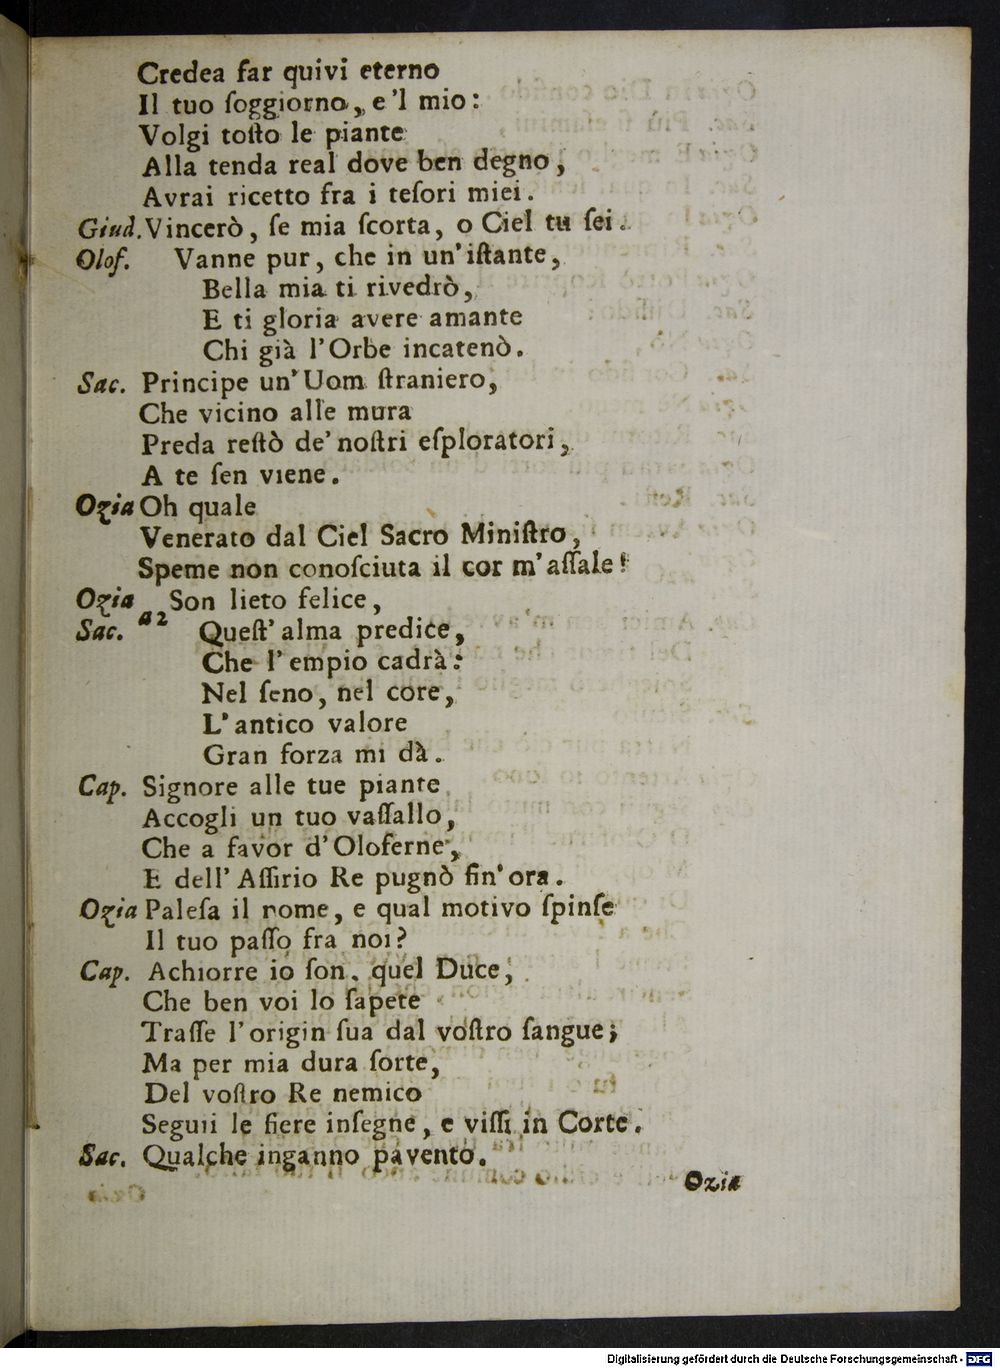 Credea far quivi eterno
Il tuo ſoggiorno, e 'l mio:
Volgi toſto le piante
Alla tenda real dove ben degno,
Avrai ricetto fra i teſori miei.
Giud. Vincerò, ſe mia ſcorta, o Ciel tu ſei.
Olof. Vanne pur, che in un' iſtante,
Bella mia ti rivedrò,
E ti gloria avere amante
Chi già l'Orbe incatenò.
Sac. Principe un' Uom ſtraniero,
Che vicino alle mura
Preda reſtò de' noſtri eſploratori,
A te ſen viene.
Ozia Oh quale
Venerato dal Ciel Sacro Miniſtro,
Speme non conoſciuta il cor m' aſſale!
Ozia Son lieto felice,
Sac. a2 Queſt' alma predice,
Che l' empio cadrà:
Nel ſeno, nel core,
L' antico valore
Gran forza mi dà.
Cap. Signore alle tue piante
Accogli un tuo vaſſallo,
Che a favor d' Oloferne,
E dell' Aſſirio Re pugnò fin' ora.
Ozia Paleſa il nome, e qual motivo ſpinſe
Il tuo paſſo fra noi?
Cap. Achiorre io ſon, quel Duce,
Che ben voi lo ſapete
Traſſe l' origin ſua dal voſtro ſangue;
Ma per mia dura ſorte,
Del voſtro Re nemico
Seguii le fiere inſegne, e viſſi in Corte.
Sac. Qualche inganno pavento.
Ozia
Digitalisierung gefördert durch die Deutsche Forschungsgemeinschaft - DFG